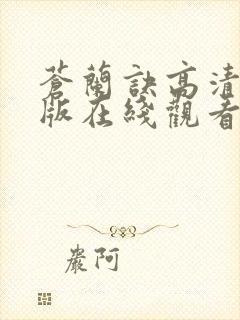 蒼蘭訣高清
版在綫觀看
嚴阿